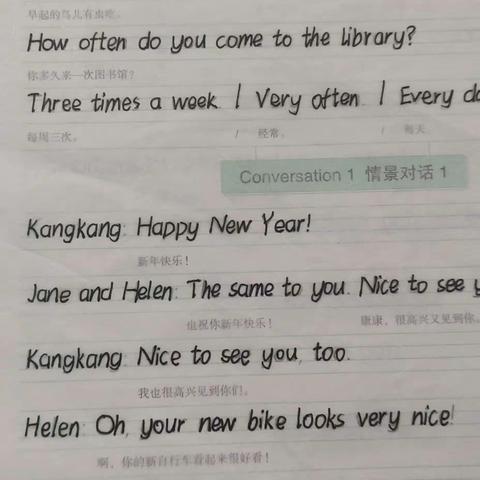 早起的鸟儿有虫吃。
How often do you come to the library?
你多久来一次图书馆?
Three times a week. / Very often. / Every
每周三次。 / 经常。 / 每天
Conversation 1 情景对话 1
Kangkang: Happy New Year!
新年快乐!
Jane and Helen: The same to you. Nice to see
也祝你新年快乐! 康康,很高兴又见到你。
Kangkang: Nice to see you, too.
我也很高兴见到你们。
Helen: Oh, your new bike looks very nice!
啊,你的新自行车看起来很好看!